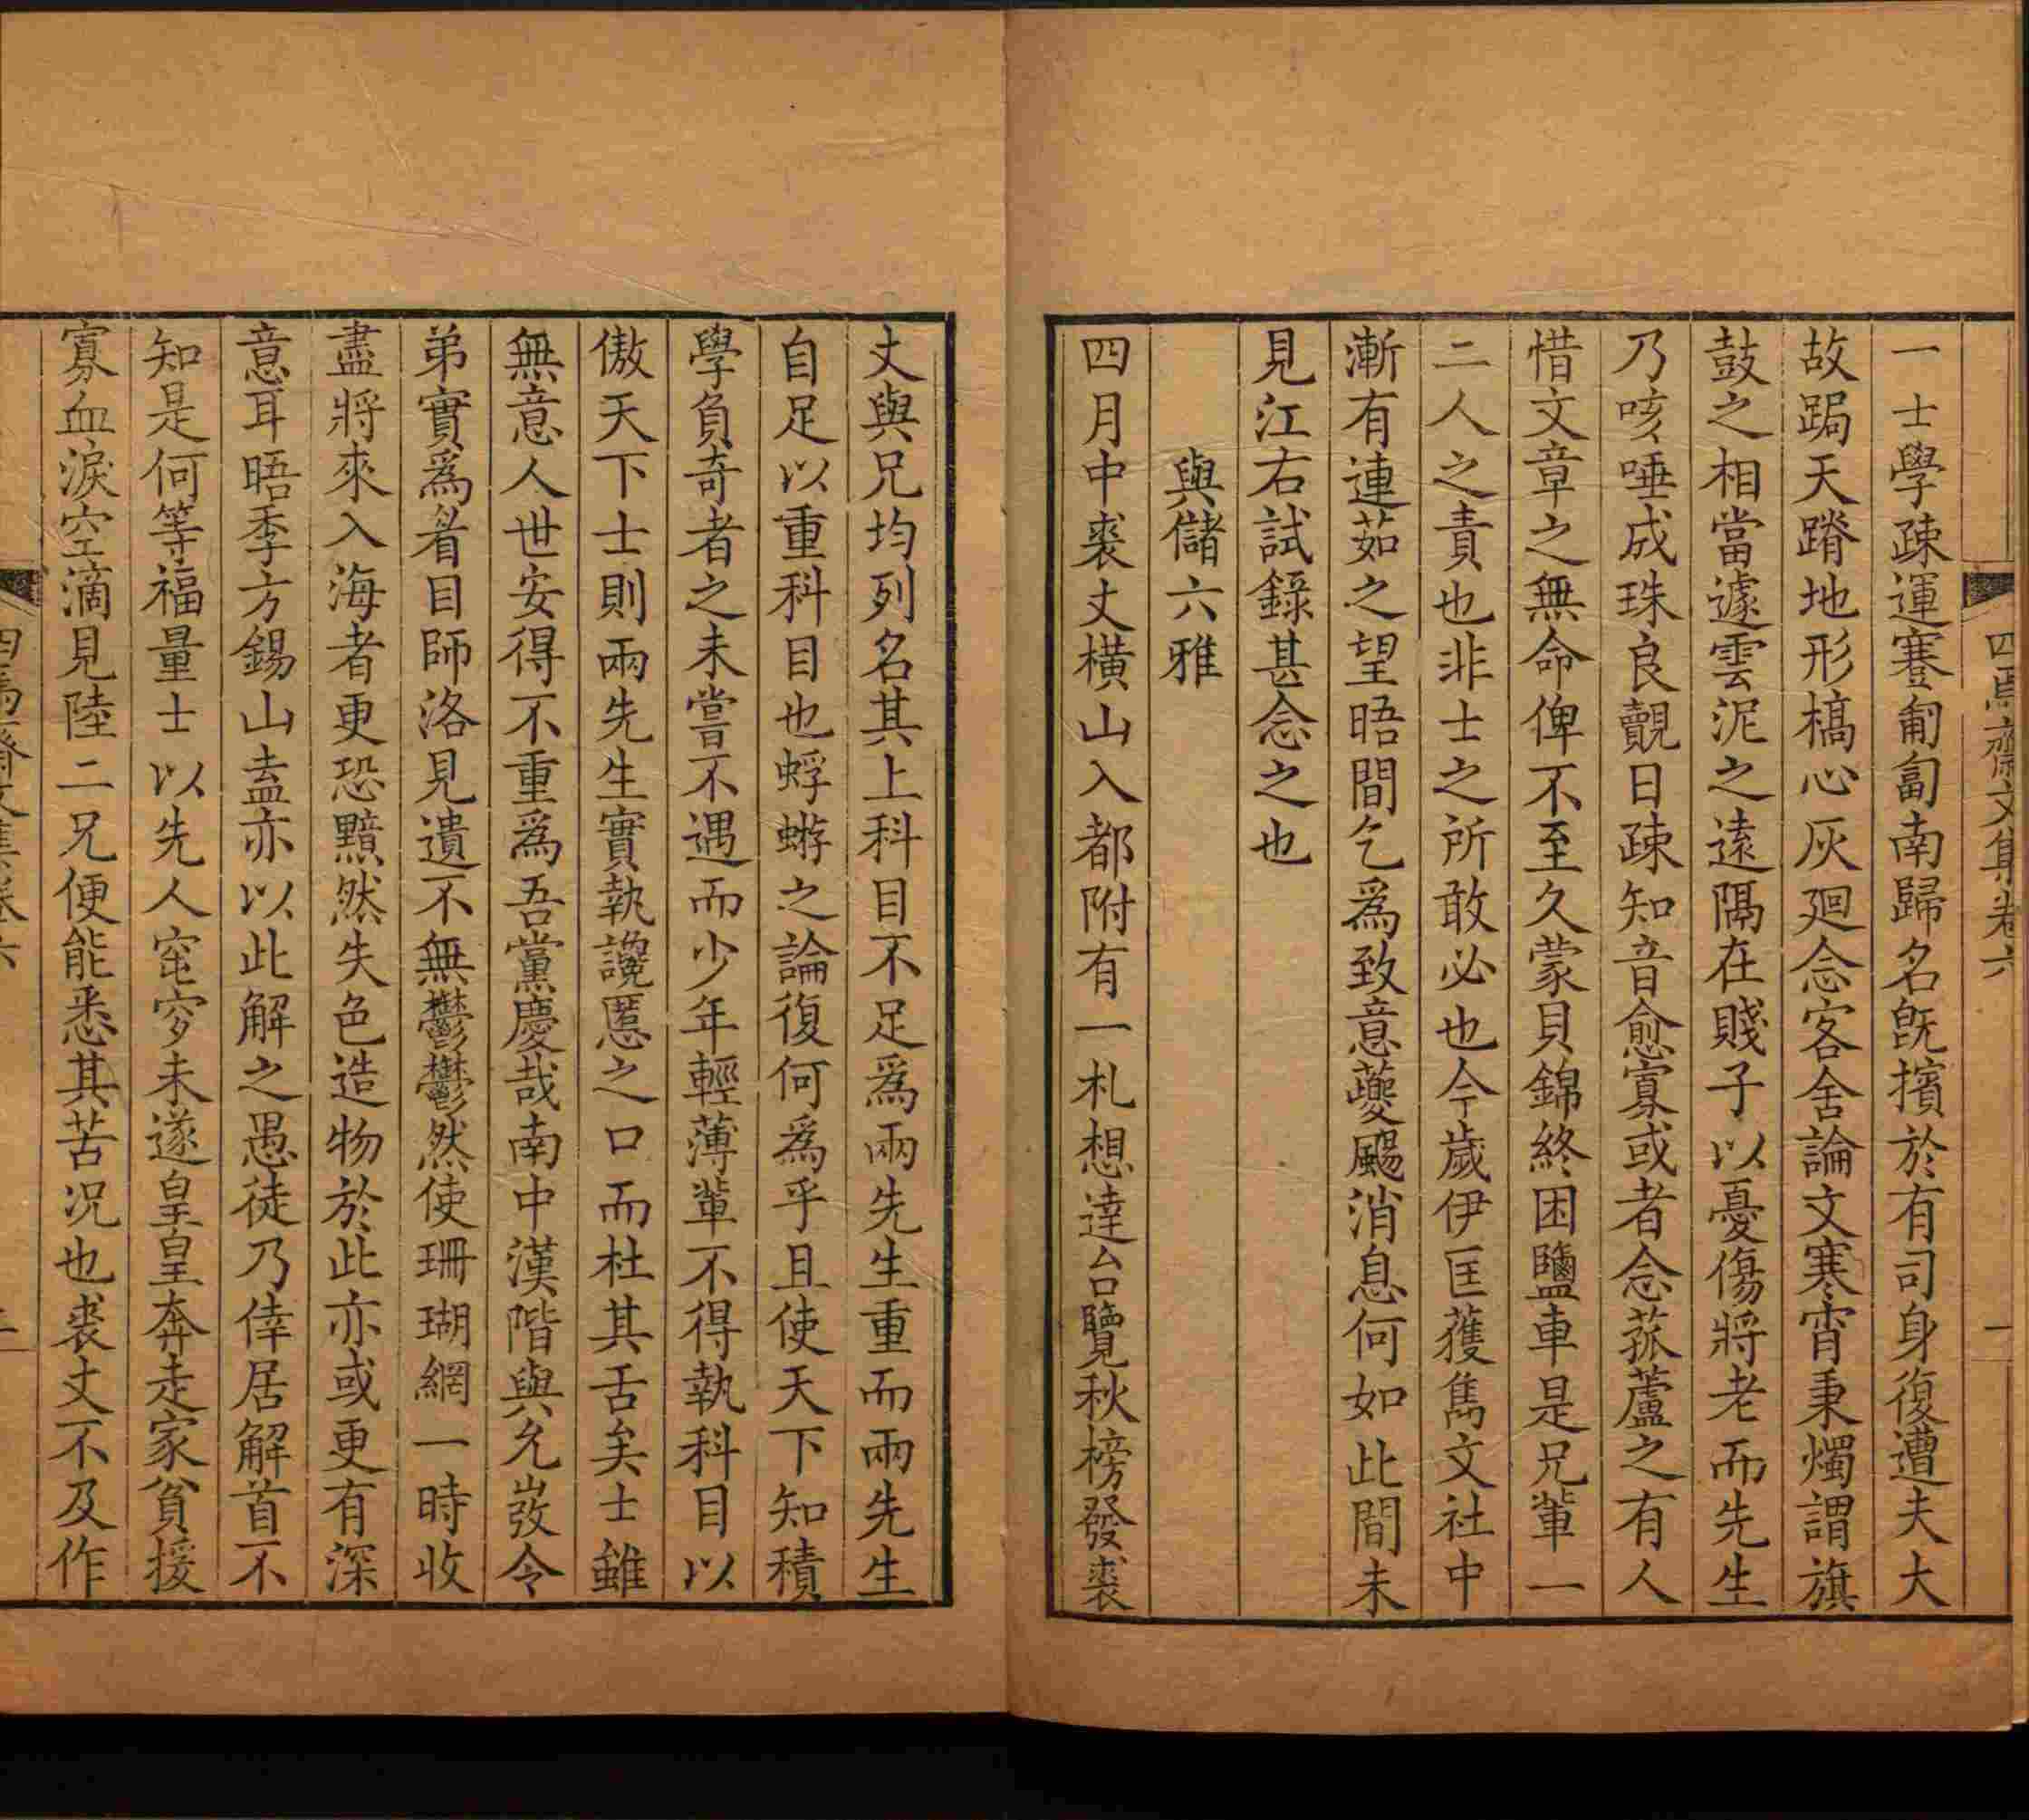 四焉齋文集卷六
一
一士學疎運蹇匍匐南歸名旣擯於有司身復遭夫大
故跼天蹐地形槁心灰廻念客舍論文寒宵秉燭謂旗
鼓之相當遽雲泥之遠隔在賤子以憂傷將老而先生
乃咳唾成珠良覿日疎知音愈寡或者念菰蘆之有人
惜文章之無命俾不至久蒙貝錦終困鹽車是兄輩一
二人之責也非士之所敢必也今歲伊匡獲雋文社中
漸有連茹之望晤間乞爲致意夔颺消息何如此間未
見江右試錄甚念之也
與儲六雅
四月中裘丈橫山入都附有一札想達台覽秋榜發裘
丈與兄均列名其上科目不足爲兩先生重而兩先生
自足以重科目也蜉蝣之論復何爲乎且使天下知積
學負奇者之未嘗不遇而少年輕薄輩不得執科目以
傲天下士則兩先生實執讒慝之口而杜其舌矣士雖
無意人世安得不重爲吾黨慶哉南中漢階與允敚令
弟實爲眉目師洛見遺不無鬱鬱然使珊瑚網一時收
盡將來入海者更恐黯然失色造物於此亦或更有深
意耳晤季方錫山盍亦以此解之愚徒乃倖居解首不
知是何等福量士以先人窀穸未遂皇皇奔走家貧援
寡血淚空滴見陸二兄便能悉其苦况也裘丈不及作
四焉齋文集卷六